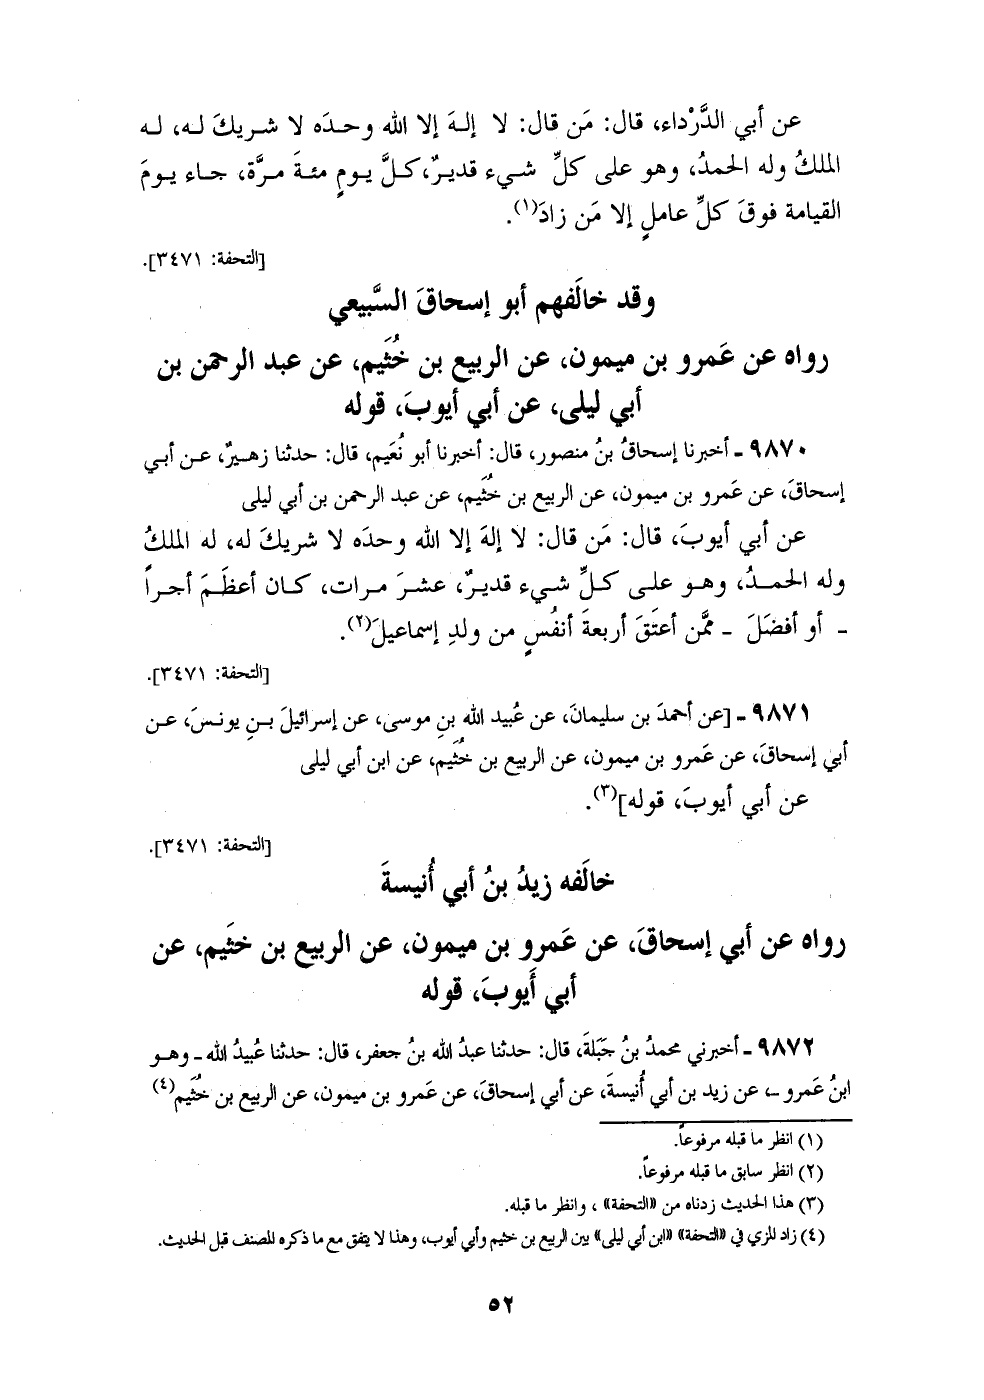 عن أبي الدَّرْداء، قال: مَن قال: لا إلهَ إلا الله وحدَه لا شريكَ له، له
الملكُ وله الحمدُ، وهو على كلِّ شيء قديرٌ،كلَّ يومٍ مئةَ مرَّة، جاء يومَ
القيامة فوقَ كلِّ عاملٍ إلا مَن زادَ(١).
[التحفة: ٣٤٧١].
وقد خالَفهم أبو إسحاقَ السَّبيعي
رواه عن عَمرو بن ميمون، عن الربيع بن خُثَيم، عن عبد الرحمن بن
أبي ليلى، عن أبي أيوبَ، قوله
٩٨٧٠ ـ أخبرنا إسحاقُ بنُ منصور، قال: أخبرنا أبو نُعَيم، قال: حدثنا زهيرٌ، عن أبي
إسحاقَ، عن عَمرو بن ميمون، عن الربيع بن خُثَيم، عن عبد الرحمن بن أبي ليلى
عن أبي أيوبَ، قال: مَن قال: لا إلهَ إلا الله وحدَه لا شريكَ له، له الملكُ
وله الحمدُ، وهو على كلِّ شيء قديرٌ، عشرَ مرات، كان أعظَمَ أجراً
ـ أو أفضَلَ ـ ممَّن أعتَقَ أربعةَ أنفُسٍ من ولدِ إسماعيلَ(٢).
[التحفة: ٣٤٧١].
٩٨٧١ ـ [عن أحمدَ بن سليمانَ، عن عُبيد الله بنِ موسى، عن إسرائيلَ بنِ يونسَ، عن
أبي إسحاقَ، عن عَمرو بن ميمون، عن الربيع بن خُثَيم، عن ابن أبي ليلى
عن أبي أيوبَ، قوله](٣).
[التحفة: ٣٤٧١].
خالَفه زيدُ بنُ أبي أُنيسةَ
رواه عن أبي إسحاقَ، عن عَمرو بن ميمون، عن الربيع بن خثَيم، عن
أبي أَيوبَ، قوله
٩٨٧٢ ـ أخبرني محمدُ بنُ جَبَلةَ، قال: حدثنا عبدُ الله بنُ جعفر، قال: حدثنا عُبيدُ الله ـ وهو
ابنُ عَمرو ـ، عن زيد بن أبي أُنيسةَ، عن أبي إسحاقَ، عن عَمرو بن ميمون، عن الربيع بن خُثَيم(٤)
(١) انظر ما قبله مرفوعاً.
(٢) انظر سابق ما قبله مرفوعاً.
(٣) هذا الحديث زدناه من «التحفة» ، وانظر ما قبله.
(٤) زاد المزي في «التحفة» «ابن أبي ليلى» بين الربيع بن خثيم وأبي أيوب، وهذا لا يتفق مع ما ذكره المصنف قبل الحديث.
٥٢